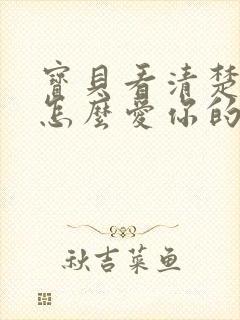 寶貝看清楚
怎麼愛你的
秋吉菜鱼